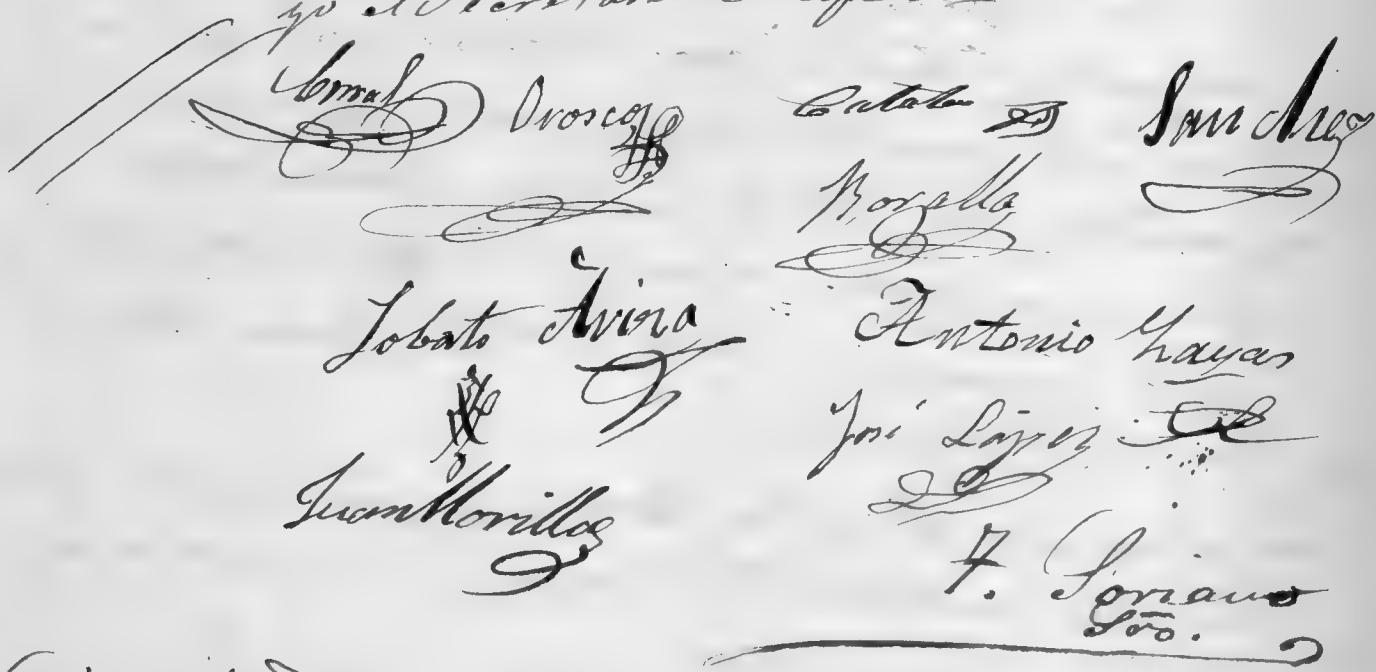 yo el Secretario
Corral Orosco Catalan Sanchez
Bonella
Lobato Avina Antonio Zayas
José López
Juan Morillas
F. Soriano
Srio.